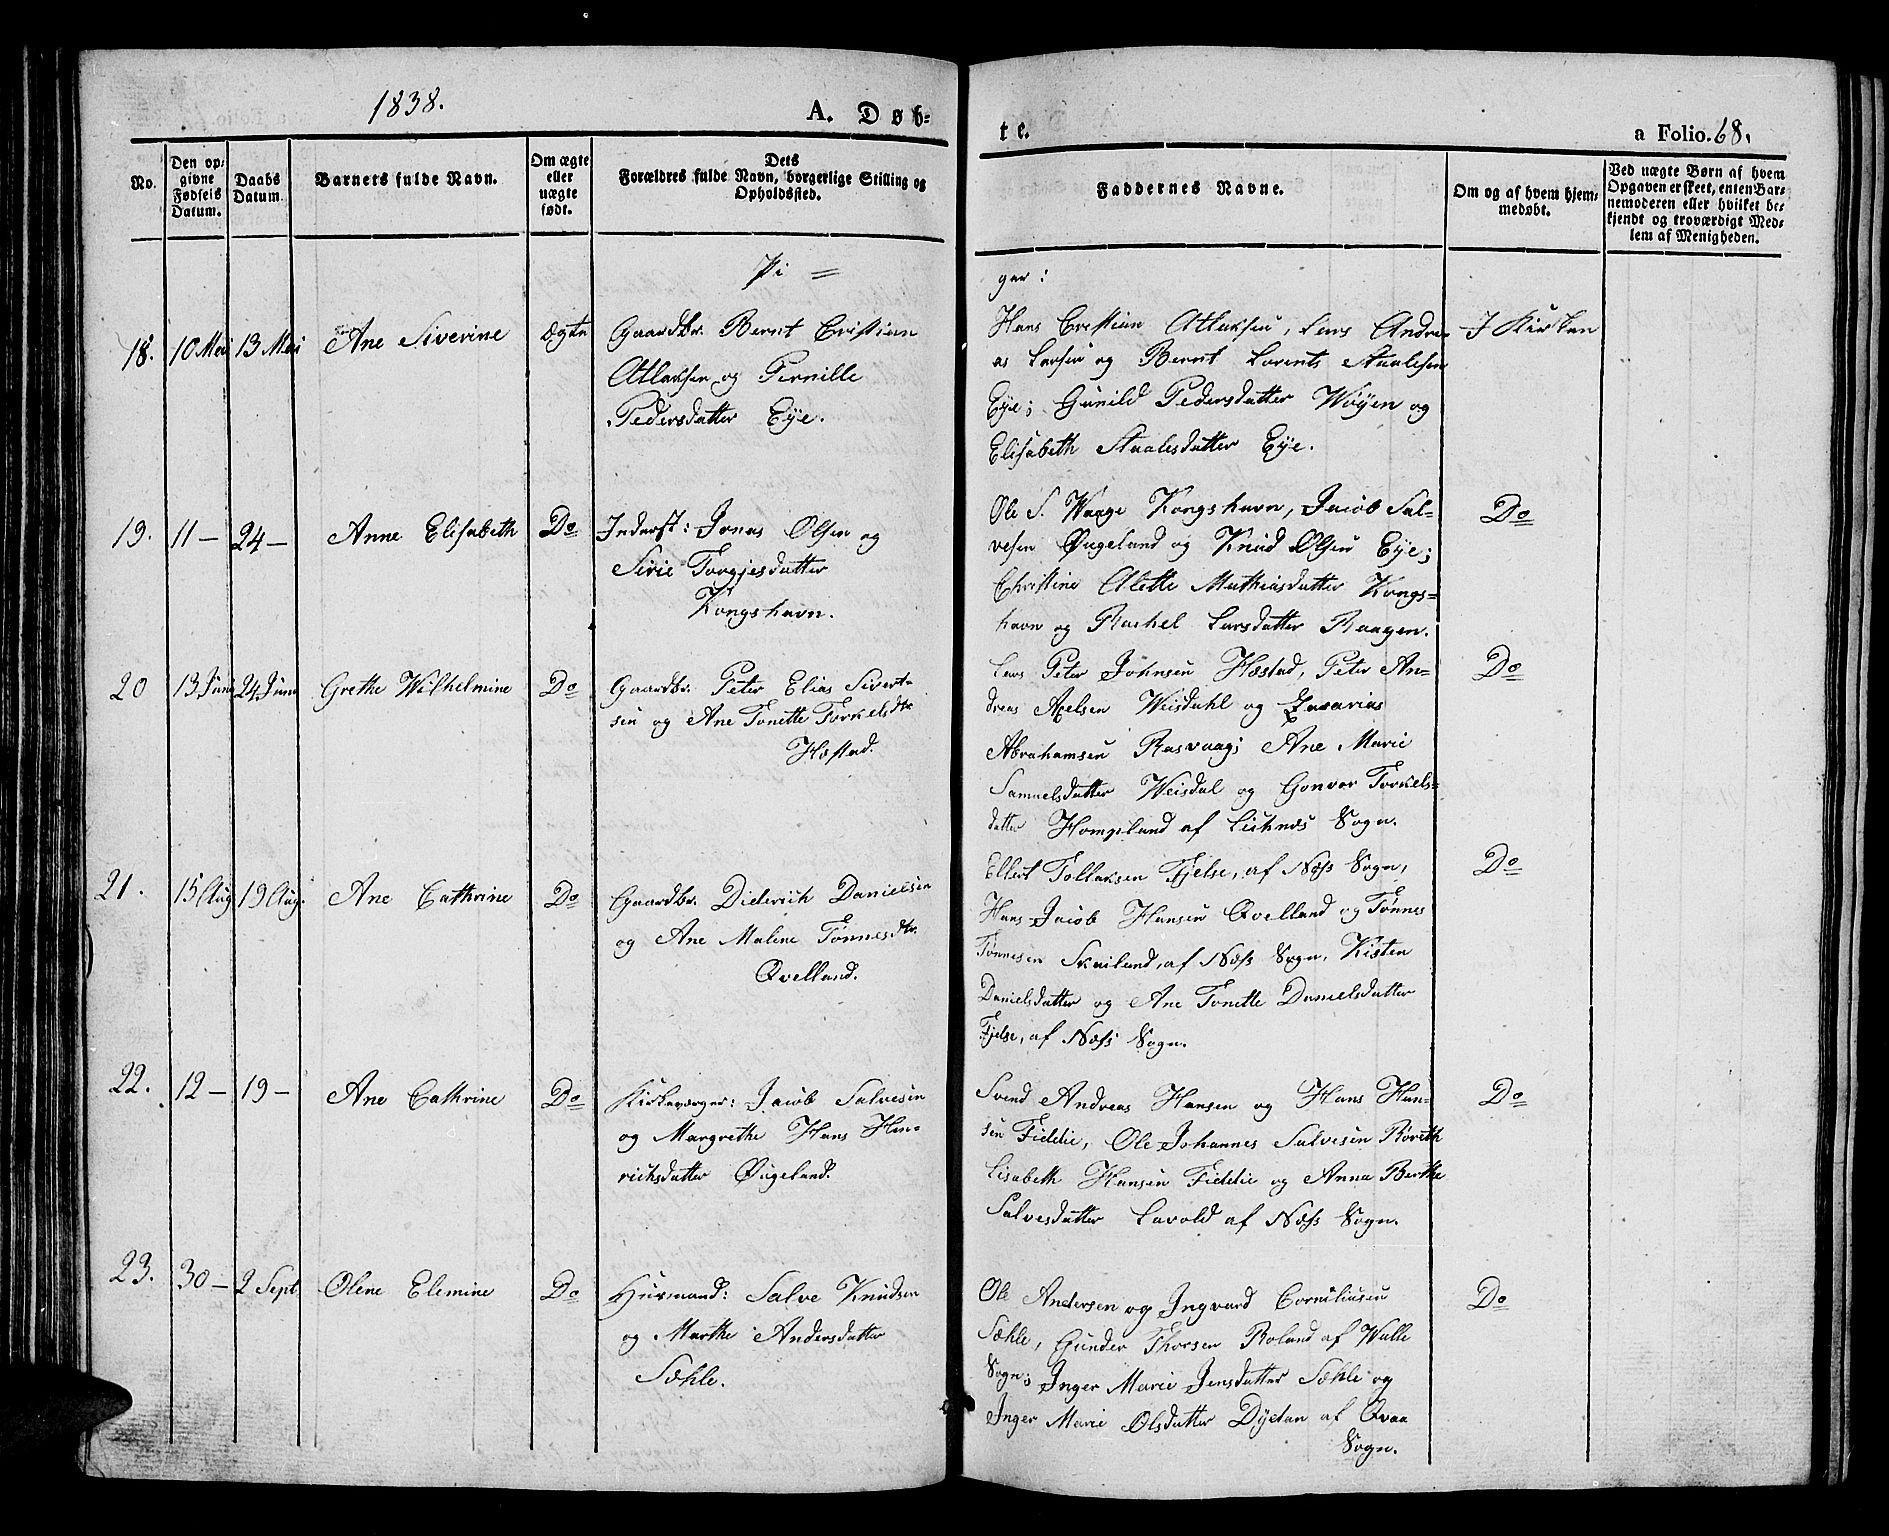 1838.
A. Døb=
te.
a Folio. 68.
No.
Den op=
givne
Fødsels
Datum.
Daabs
Datum
Barnets fulde Navn.
Om ægte
eller
uægte
født.
Dets
Forældres fulde Navn, borgerlige Stilling og
Opholdssted.
Faddernes Navne.
Om og af hvem hjem=
medøbt.
Ved uægte Børn af hvem
Opgaven er skeet, enten Bar=
nemoderen eller hvilket be=
kjendt og troværdigt Med=
lem af Menigheden.
Pi =
ger:
18. 10 Mai 13 Mai Ane Siverine Ægte
Gaardbr. Bernt Cristian
Atlaksen og Pernille
Pedersdatter Eye.
Hans Cristian Atlaksen, Lars Andre-
as Larsen og Bernt Lorents Staalesen
Eye; Gunild Pedersdatter Woyen og
Elisabeth Staalesdatter Eye.
I Kirken
19. 11 - 24 - Anne Elisabeth Do
Inderst: Jonas Olsen og
Sirie Torgjesdatter
Kongshavn.
Ole S. Waage Kongshavn, Jacob Sal-
vesen Øugeland og Knud Olsen Eye;
Christine Alette Mathiasdatter Kongs=
havn og Rachel Larsdatter Raagen.
Do
20 13 Juni 24 Juni Grethe Wilhelmine Do
Gaardbr. Peter Elias Sivert-
sen og Ane Tonette Torkelsdtr
Hæstad.
Lars Peter Johnsen Hæstad, Peter An-
dreas Axelsen Weisdahl og Zacarias
Abrahamsen Rasvaag; Ane Marie
Samuelsdatter Weisdal og Gonvor Torkels-
datter Hompland af Lichnæs Sogn.
Do
21. 15 Aug 19 Aug. Ane Cathrine Do
Gaardbr. Diderich Danielsen
og Ane Maline Tønnesdtr.
Qvelland.
Ellert Tollaksen Fjelse, af Næss Sogn,
Hans Jacob Hansen Qvelland og Tønnes
Tønnesen Skailand, af Næss Sogn, Kisten
Danielsdatter og Ane Tonette Danielsdatter
Fjelse, af Næss Sogn.
Do
22. 12 - 19 - Ane Cathrine Do
Kirkeværger: Jacob Salvesen
og Margrethe Hans Hen-
richsdatter Øugeland.
Svend Andreas Hansen og Hans Han-
sen Fiddie, Ole Johannes Salvesen Røreth
Lisabeth Hansen Fiddie og Anna Berthe
Salvesdatter Lavold af Næss Sogn.
Do
23. 30 - 2 Sept Olene Elemine Do
Huusmand: Salve Knudsen
og Marthe Andersdatter
Sæhle.
Ole Andersen og Ingvard Corniliusen
Sæhle, Gunder Thorsen Roland af Walle
Sogn; Inger Marie Jensdatter Sæhle og
Inger Marie Olsdatter Dyetan af Qvaa
Sogn.
Do